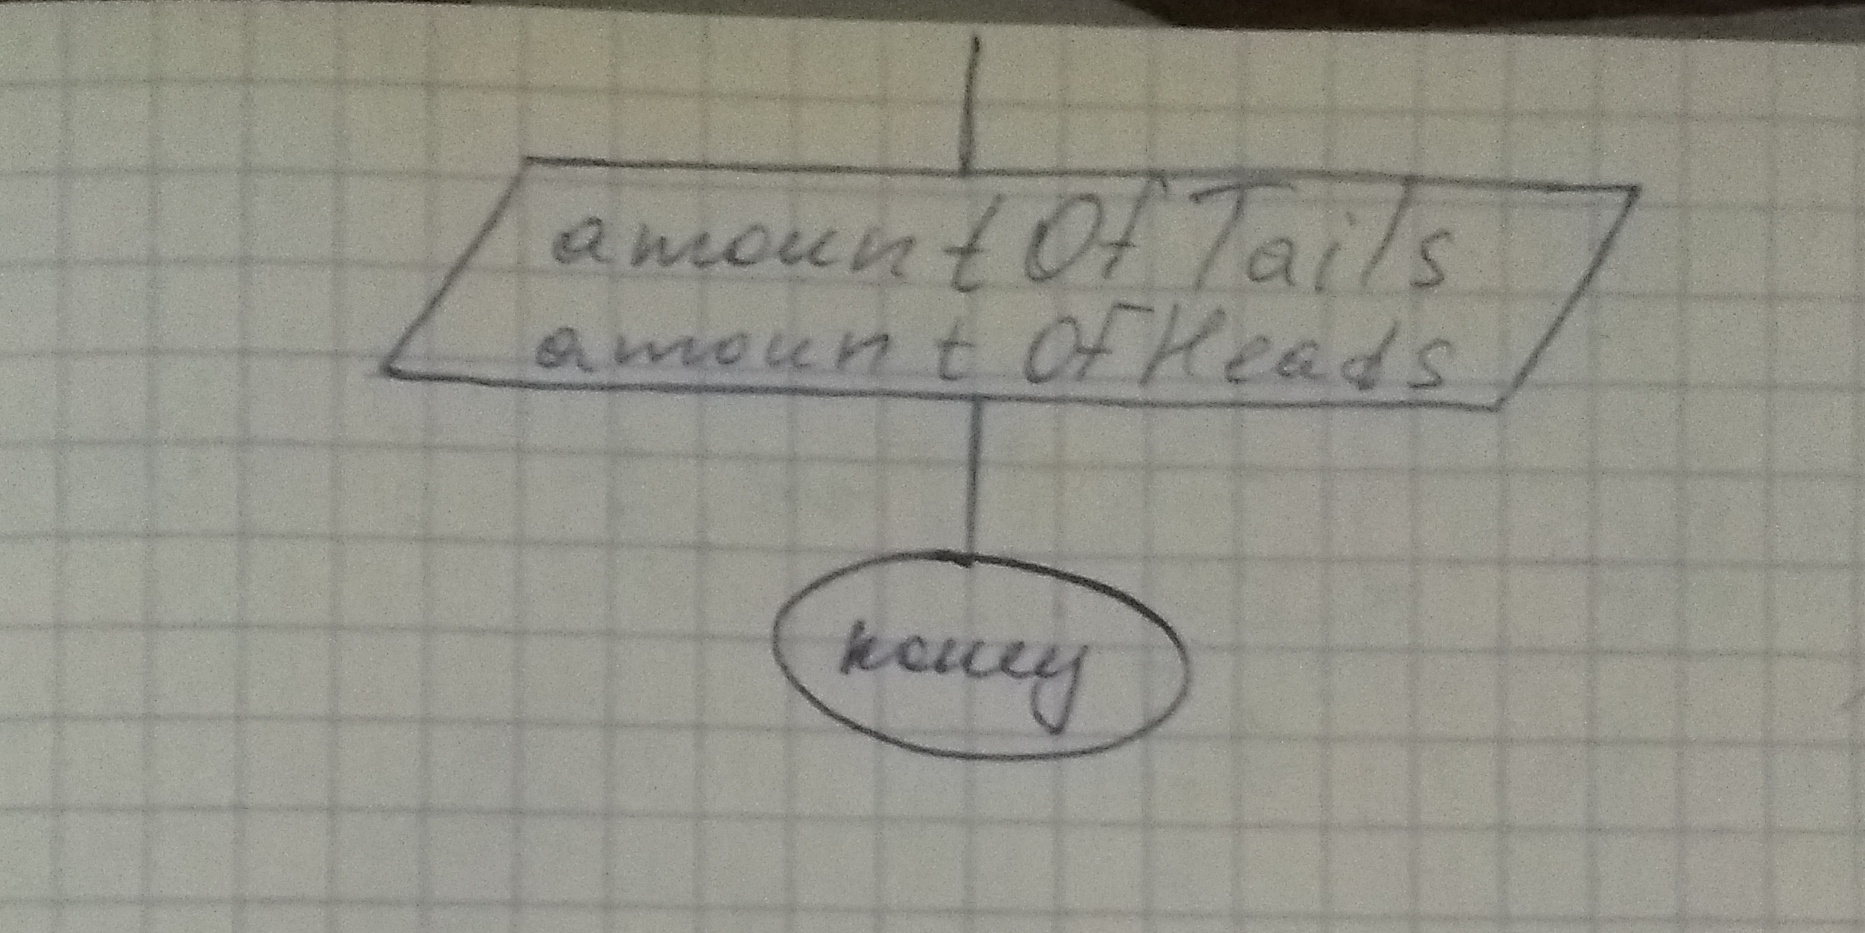 amountOfTails
amountOfHeads
конец